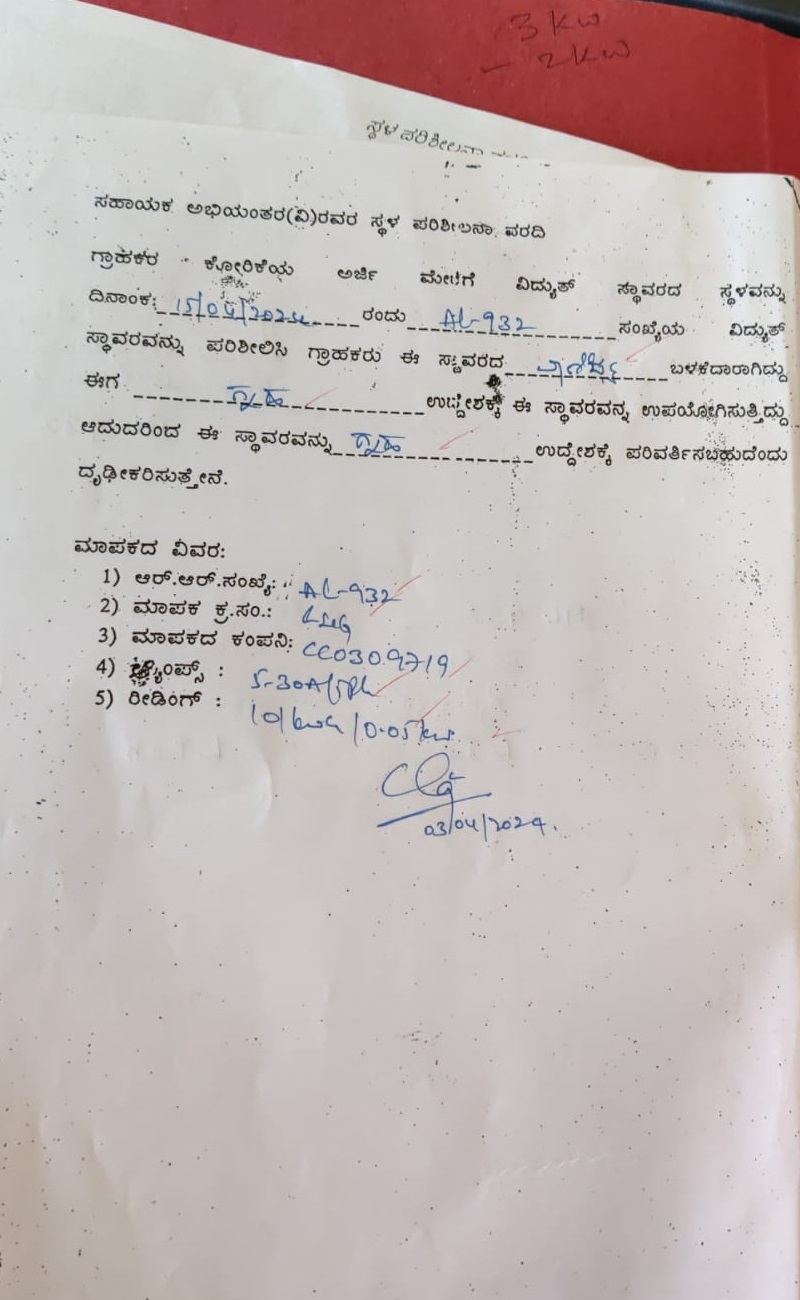 3 KW
- 2 KW
ಸ್ಥಳ ಪರಿಶೀಲನಾ
ಸಹಾಯಕ ಅಭಿಯಂತರ(ವಿ)ರವರ ಸ್ಥಳ ಪರಿಶೀಲನಾ ವರದಿ
ಗ್ರಾಹಕರ ಕೋರಿಕೆಯ ಅರ್ಜಿ ಮೇಲೆಗೆ ವಿದ್ಯುತ್ ಸ್ಥಾವರದ ಸ್ಥಳವನ್ನು
ದಿನಾಂಕ: 15/04/2024 ರಂದು AL-932 ಸಂಖ್ಯೆಯ ವಿದ್ಯುತ್
ಸ್ಥಾವರವನ್ನು ಪರಿಶೀಲಿಸಿ ಗ್ರಾಹಕರು ಈ ಸ್ಥಾವರದ ಬಳಕೆದಾರಾಗಿದ್ದು
ಈಗ ಗೃಹ ಉದ್ದೇಶಕ್ಕೆ ಈ ಸ್ಥಾವರವನ್ನ ಉಪಯೋಗಿಸುತ್ತಿದ್ದು
ಆದುದರಿಂದ ಈ ಸ್ಥಾವರವನ್ನು ಗೃಹ ಉದ್ದೇಶಕೆ ಪರಿವರ್ತಿಸಬಹುದೆಂದು
ದೃಢೀಕರಿಸುತ್ತೇನೆ.
ಮಾಪಕದ ವಿವರ:
1) ಆರ್.ಆರ್.ಸಂಖ್ಯೆ: AL-932
2) ಮಾಪಕ ಕ್ರ.ಸಂ.: L&G
3) ಮಾಪಕದ ಕಂಪನಿ: CC0309719
4) : 5-30A/
5) ರೀಡಿಂಗ್ : 101 kwh /0.05 kw
03/04/2024.